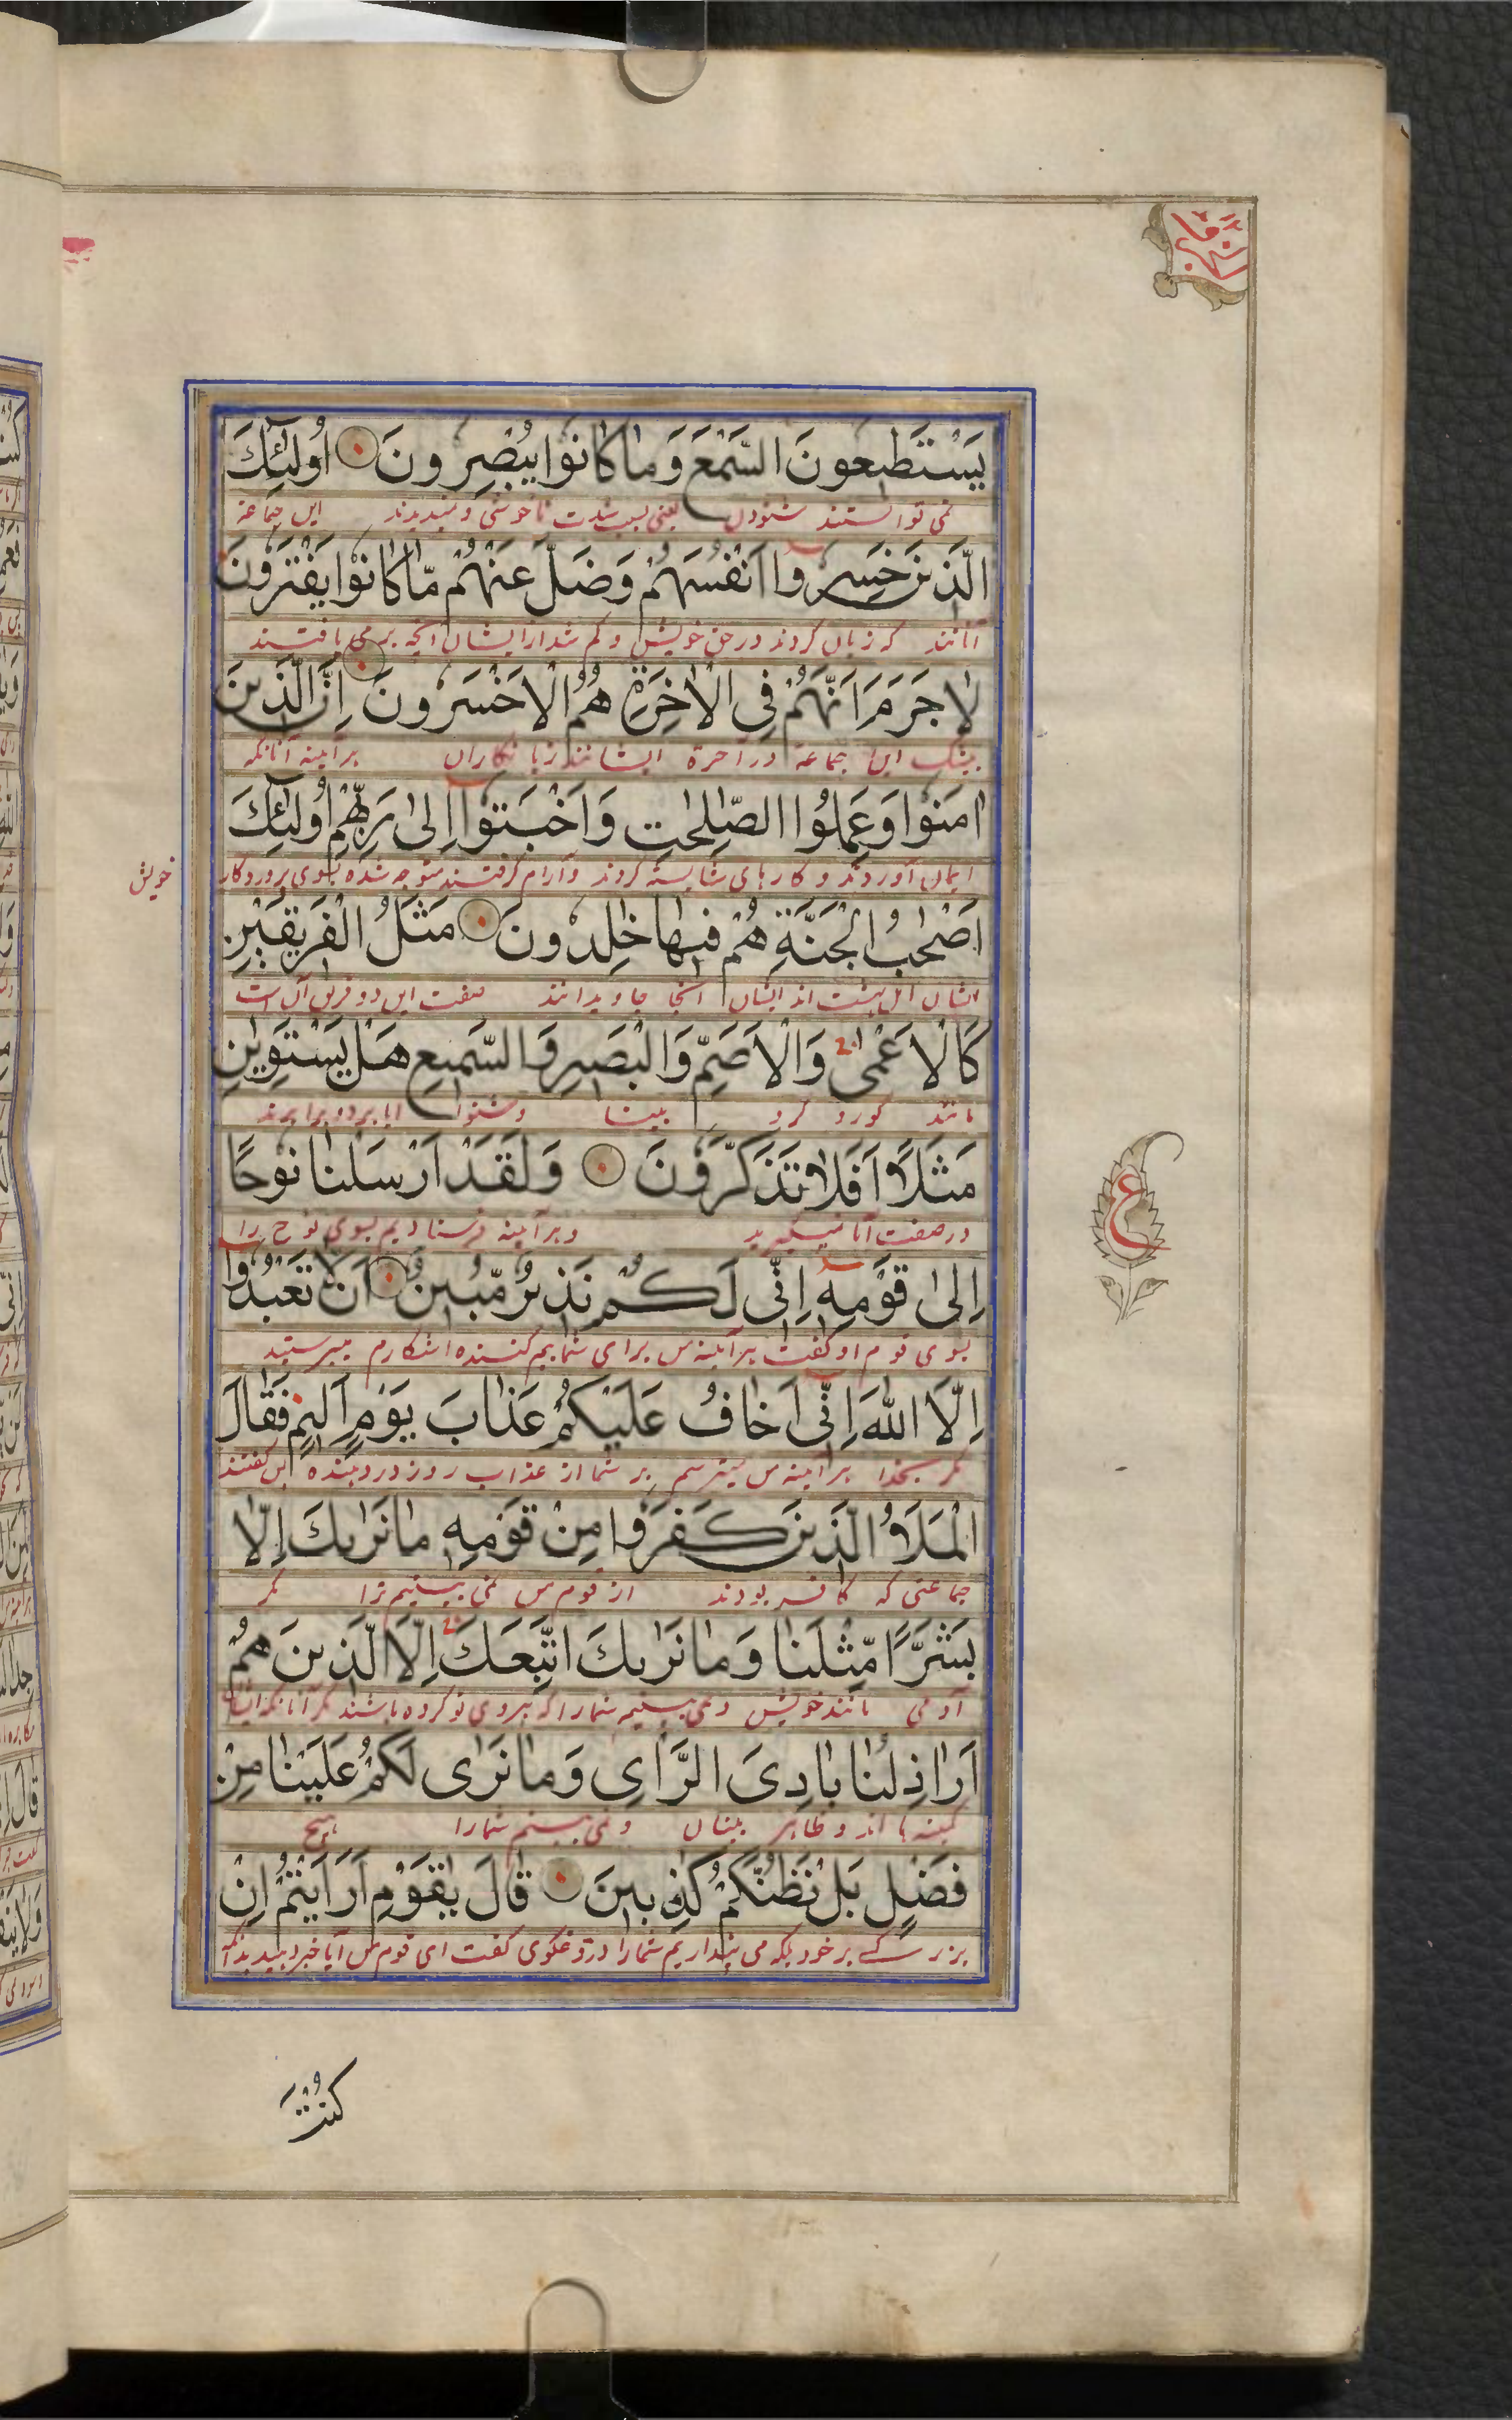 يَسْتَطيعونَ السَّمْعَ وَمٰا كٰانوُا يُبْصِرُونَ اُولٰٓئِكَ
نمی توانستند شنودن یعنی بسبب شدت ناخوشی و نمیدیدند این جماعة
الَّذينَ خَسِرُوا اَنْفُسَهُمْ وَضَلَّ عَنْهُمْ مّٰا كٰانوُا يَفْتَرُونَ
آنانند که زیان کردند در حق خویش و کم شد از ایشان آنچه بر می بافتند
لٰا جَرَمَ اَنَّهُمْ فِى الْاٰخِرَةِ هُمُ الْاَخْسَرُونَ اِنَّ الَّذينَ
بیشک این جماعة در آخرة ایشانند زیانکاران هرآئینه آنانکه
اٰمَنوُا وَعَمِلوُا الصّٰلِحٰتِ وَاَخْبَتوُٓا اِلىٰ رَبِّهِمْ اُولٰٓئِكَ
ایمان آوردند و کارهای شایسته کردند و آرام گرفتند متوجه شده بسوی پروردکار
خویش
اَصْحٰبُ الْجَنَّةِ هُمْ فيهٰا خٰلِدُونَ مَثَلُ الْفَريقَيْنِ
ایشان اهل بهشت اند ایشان آنجا جاویدانند صفت این دو فریق آن است
كَالْاَعْمٰى وَالْاَصَمِّ وَالْبَصيرِ وَالسَّميعِ هَلْ يَسْتَوِيٰنِ
مانند کور و کر و بینا و شنوا ایا هر دو برابرند
مَثَلًا اَفَلٰا تَذَكَّرُونَ وَلَقَدْ اَرْسَلْنٰا نوُحًا
در صفت آیا نمیگیرید و هرآئینه فرستادیم بسوی نوح را
اِلىٰ قَوْمِهٓ اِنّى لَكُمْ نَذيرٌ مُّبينٌ اَنْ لٰا تَعْبُدُوٓا
بسوی قوم او گفت هرآئینه من برای شما بیم کننده اشکارم میرستید
اِلَّا اللّٰهَ اِنّىٓ اَخٰافُ عَلَيْكُمْ عَذٰابَ يَوْمٍ اَليمٍ فَقٰالَ
مگر بخدا هرآئینه من میترسم بر شما از عذاب روز درد دهنده پس گفتند
الْمَلَاُ الَّذينَ كَفَرُوا مِنْ قَوْمِهٖ مٰا نَرٰيكَ اِلّٰا
جماعتی که کافر بودند از قوم من نمی بینیم ترا مگر
بَشَرًا مِّثْلَنٰا وَمٰا نَرٰيكَ اتَّبَعَكَ اِلَّا الَّذينَ هُمْ
آدمی مانند خویش و نمی بینیم شما را که پیروی تو کرده باشند مگر آنانکه ایشان
اَرٰاذِلُنٰا بٰادِىَ الرَّاْىِ وَمٰا نَرٰى لَكُمْ عَلَيْنٰا مِنْ
کمینه ها اند و ظاهر بینان و نمی بینم شما را هیچ
فَضْلٍ بَلْ نَظُنُّكُمْ كٰذِبينَ قٰالَ يٰقَوْمِ اَرَاَيْتُمْ اِنْ
بزرکے بر خود بلکه می پنداریم شما را دروغگوی گفت ای قوم من آیا خبر دهید بدانکه
ع
كُنْتُ